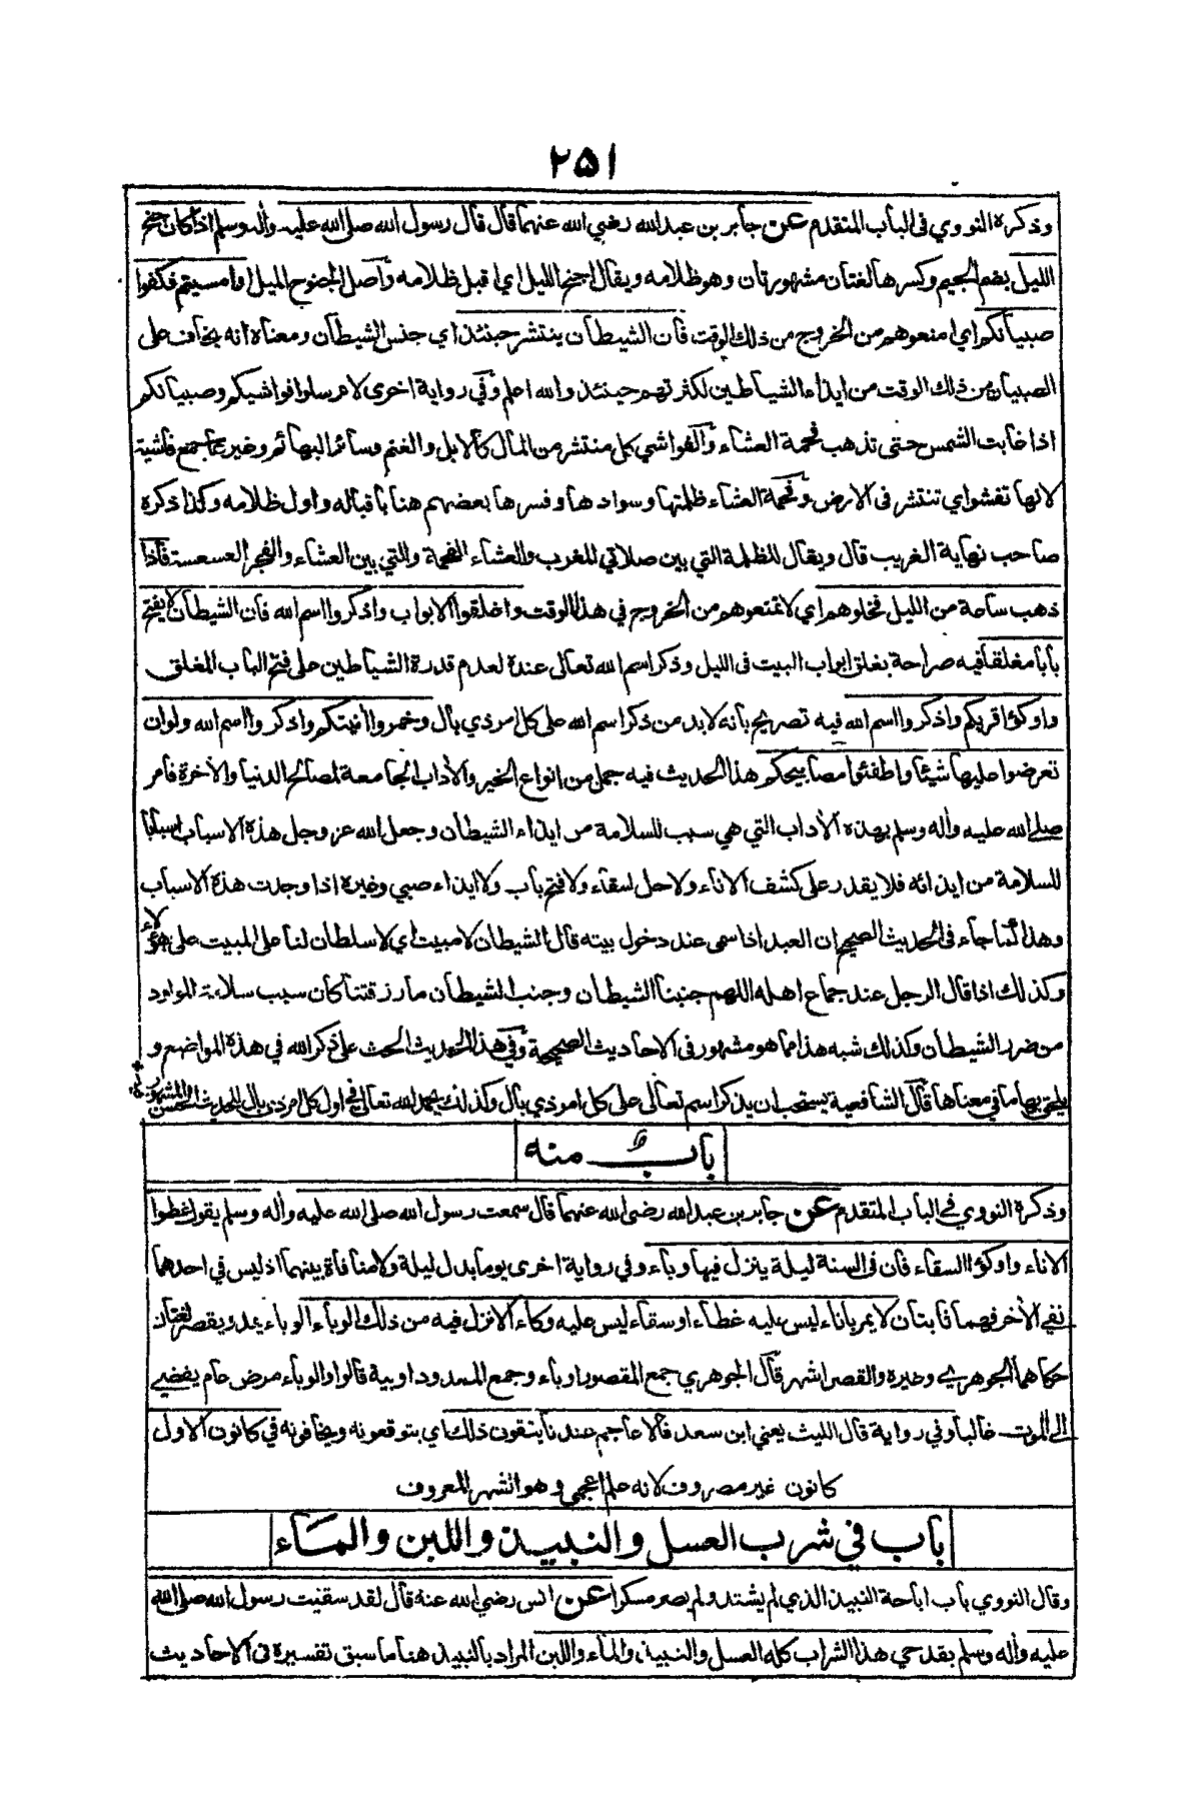 ٢٥١
وذكره النووي في الباب المتقدم عن جابر بن عبدالله رضي الله عنهما قال قال رسول الله صلى الله عليه وآله وسلم اذا كان جنح
الليل بضم الجيم وكسرها لغتان مشهورتان وهو ظلامه ويقال اجنح الليل اي اقبل ظلامه وأصل الجنوح الميل او امسيتم فكفوا
صبيانكم اي امنعوهم من الخروج من ذلك الوقت فأن الشيطأن ينتشر حينئذ اي جنس الشيطأن ومعناه انه يخاف على
الصبيان من ذلك الوقت من ايذاء الشياطين لكثرتهم حينئذ والله اعلم وفي رواية اخرى لا ترسلوا فواشيكم وصبيانكم
اذا غابت الشمس حتى تذهب فحمة العشاء والفواشي كل منتشر من المال كالابل والغنم وسائر البهائم وغيرها جمع فاشية
لانها تفشو اي تنتشر في الارض وفحمة العشاء ظلمتها وسوادها وفسرها بعضهم هنا بأقباله واول ظلامه وكذا ذكره
صاحب نهاية الغريب قال ويقال للظلمة التي بين صلاتي المغرب والعشاء الفحمة والتي بين العشاء والفجر العسعسة فأذا
ذهب ساعة من الليل فخلوهم اي لا تمنعوهم من الخروج في هذا الوقت واغلقوا الابواب واذكروا اسم الله فأن الشيطأن لا يفتح
بأبا مغلقا فيه صراحة بغلق ابواب البيت في الليل وذكر اسم الله تعالى عنده لعدم قدرة الشياطين على فتح الباب المغلق
واوكؤا قربكم واذكروا اسم الله فيه تصريح بأنه لابد من ذكر اسم الله على كل امر ذي بأل وخمروا أنيتكم واذكروا اسم الله ولو ان
تعرضوا عليها شيئا واطفئوا مصابيحكم هذا الحديث فيه جمل من انواع الخير والأداب الجامعة لمصالح الدنيا والأخرة فأمر
صلى الله عليه وأله وسلم بهذه الأداب التي هي سبب للسلامة من ايذاء الشيطأن وجعل الله عز وجل هذه الاسباب اسبابا
للسلامة من ايذائه فلا يقدر على كشف الاناء ولا حل لسقاء ولا فتح باب ولا ايذاء صبي وغيره اذا وجدت هذه الاسباب
وهذا كما جاء في الحديث الصحيح ان العبد اذا سمى عند دخول بيته قال الشيطان لا مبيت اي لا سلطان لنا على المبيت على هؤلاء
وكذلك اذا قال الرجل عند جماع اهله اللهم جنبنا الشيطان وجنب الشيطان ما رزقتنا كان سبب سلامة المولود
من ضرر الشيطان وكذلك شبه هذا مما هو مشهور في الاحاديث الصحيحة وفي هذا الحديث الحث على ذكر الله في هذه المواضع و
يلحق بها ما في معناها قال الشافعية يستحب ان يذكر اسم تعالى على كل امر ذي بأل وكذلك يحمد الله تعالى في اول كل امر ذي بال للحديث الحسن المشهور فيه
بأب منه
وذكره النووي في الباب المتقدم عن جابر بن عبدالله رضى الله عنهما قال سمعت رسول الله صلى الله عليه وأله وسلم يقول غطوا
الاناء واوكؤا السقاء فأن في السنة ليلة ينزل فيها وبأء وفي رواية اخرى يوما بدل ليلة ولا منافأة بينهما اذ ليس في احدهما
نفي الأخر فهما ثابتأن لا يمر بأناء ليس عليه غطأء او سقاء ليس عليه وكاء الا نزل فيه من ذلك الوبأء الوباء يمد ويقصر لغتان
حكاهما الجوهري وغيره والقصر اشهر قال الجوهري جمع المقصور اوباء وجمع الممدود اوبية قالوا والوباء مرض عام يفضي
الى الموت غالبا وفي رواية قال الليث يعني ابن سعد فألاعاجم عندنا يتقون ذلك اي يتوقعونه ويخافونه في كانون الاول
كانون غير مصروف لانه علم اعجمي وهو الشهر المعروف
بأب في شرب العسل والنبيذ واللبن والمأء
وقال النووي بأب ابأحة النبيذ الذي لم يشتد ولم يصر مسكرا عن انس رضي الله عنه قال لقد سقيت رسول الله صلى الله
عليه وأله وسلم بقدحي هذا الشراب كله العسل والنبيذ والمأء واللبن المراد بألنبيذ هنا ما سبق تفسيره في الاحاديث